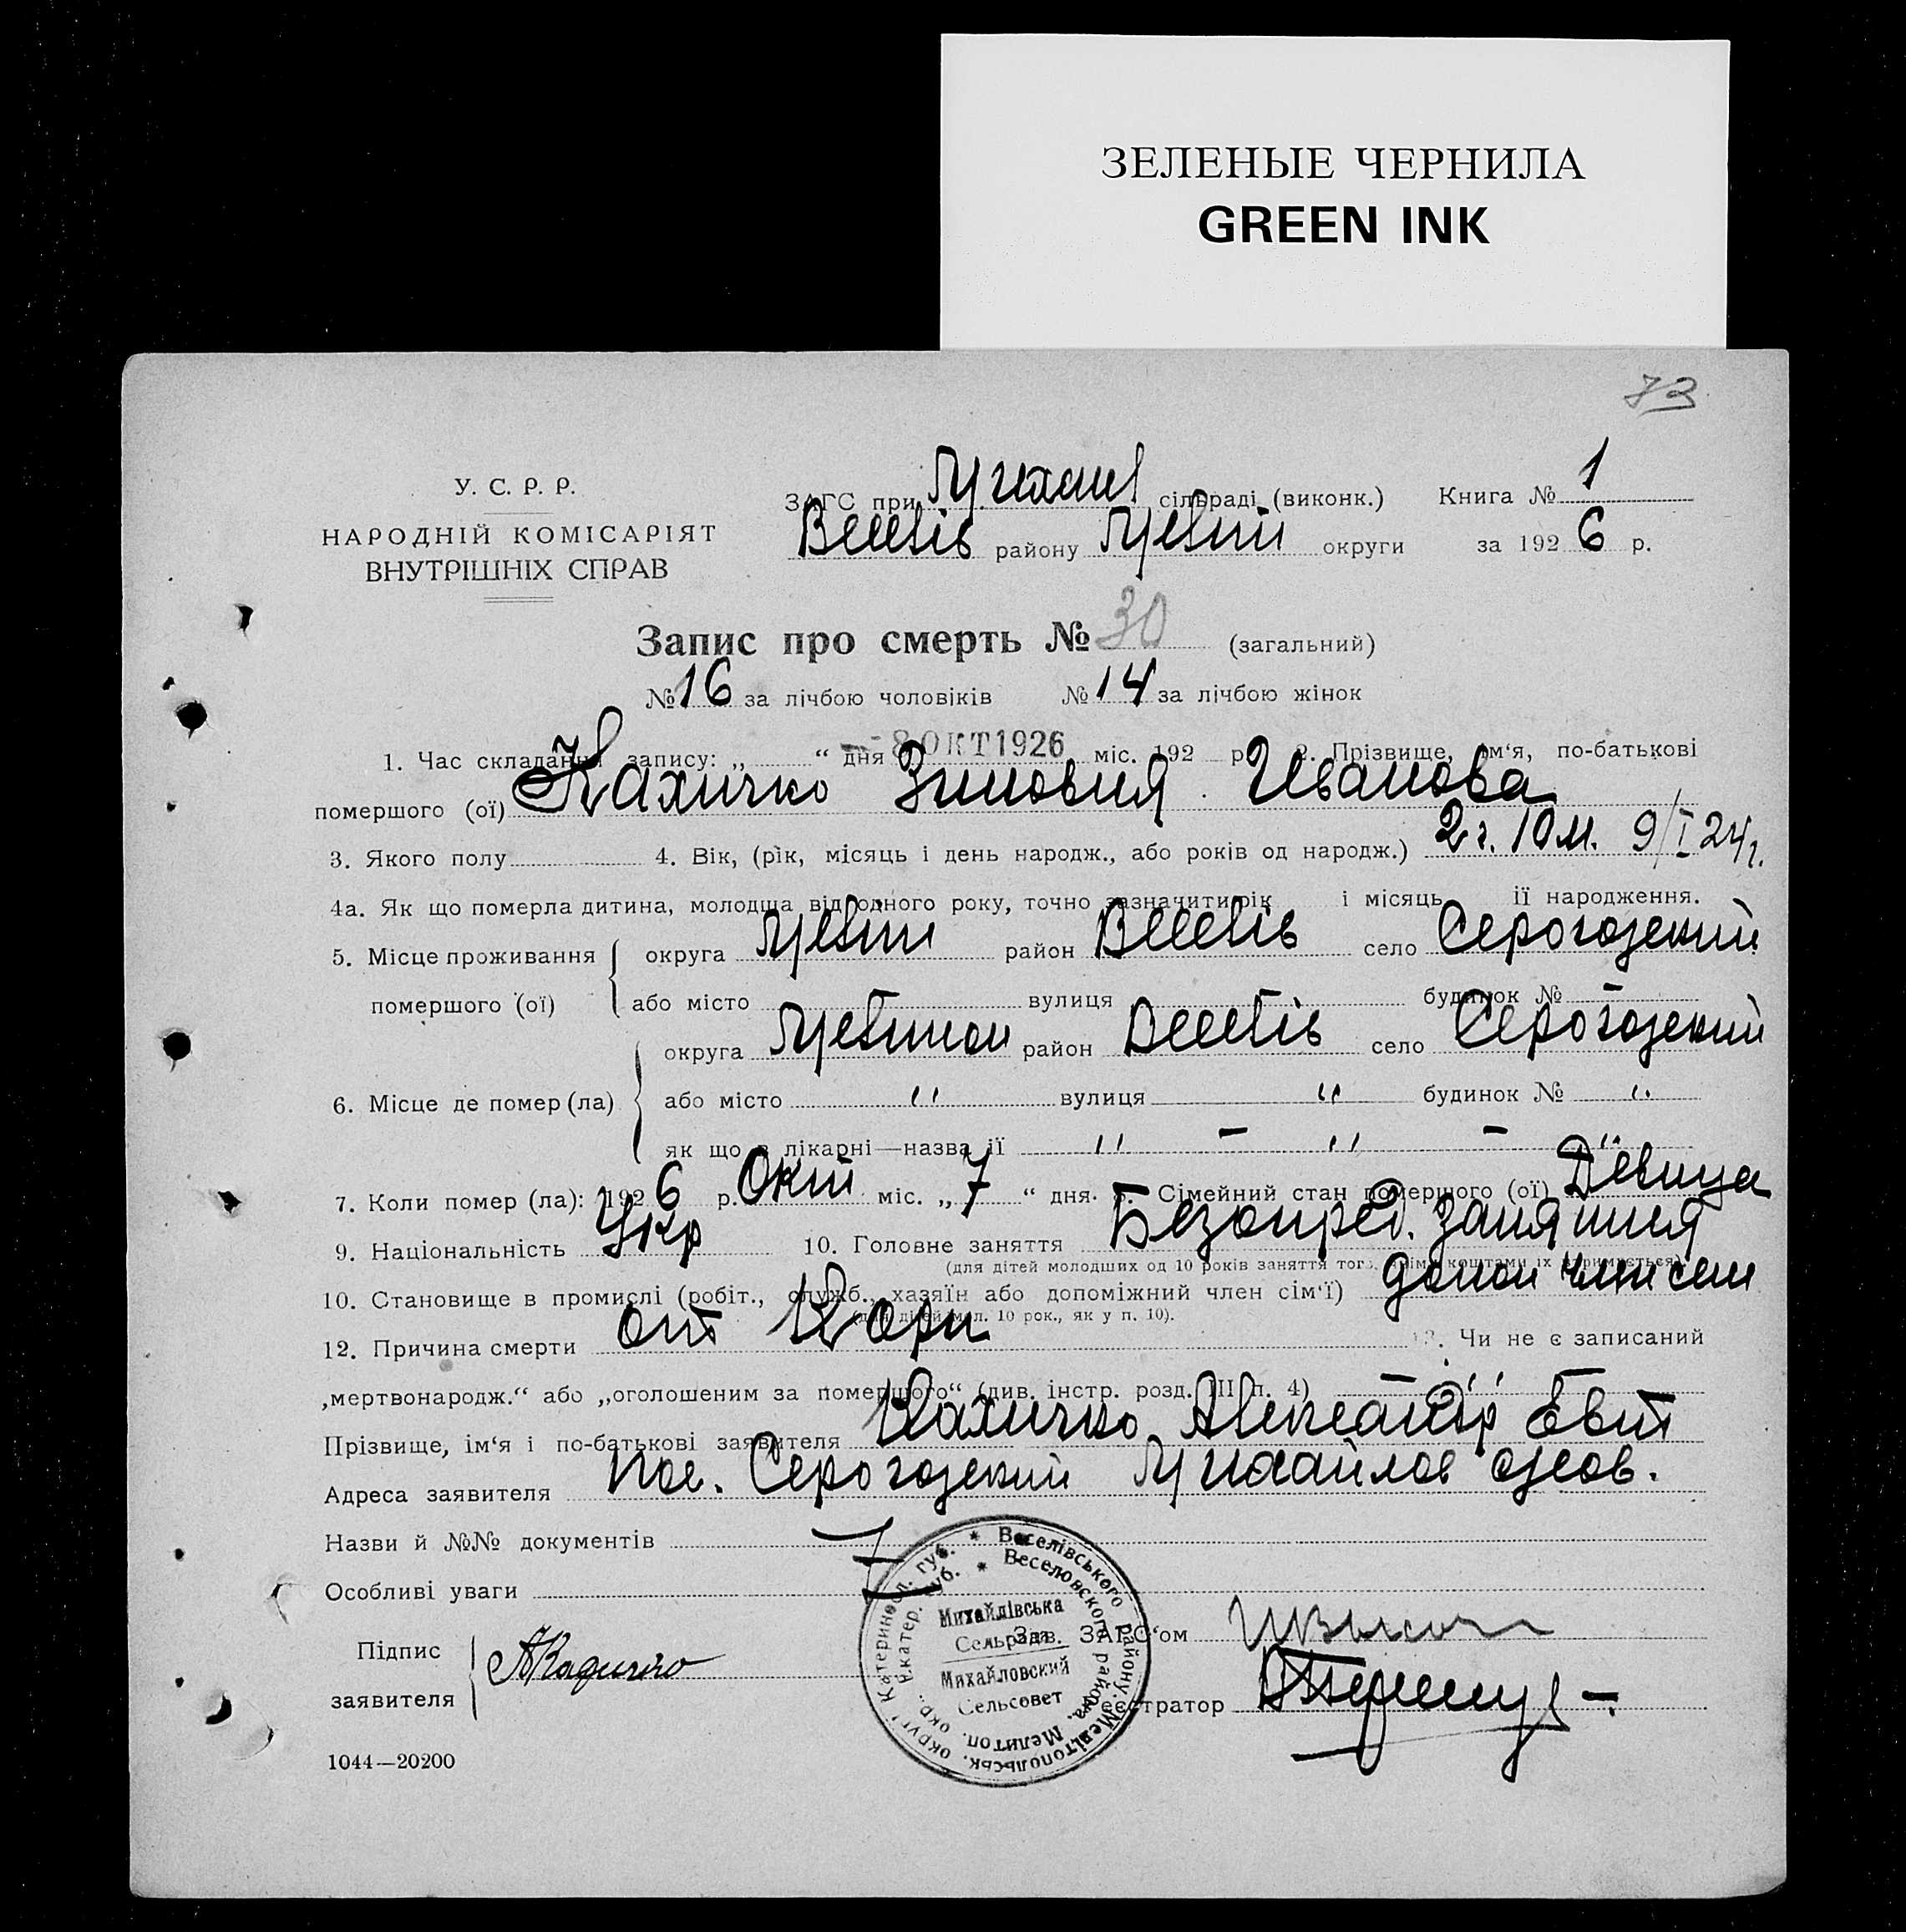 ЗЕЛЕНЫЕ ЧЕРНИЛА
GREEN INK
73
У. С. Р. Р.
НАРОДНІЙ КОМІСАРІЯТ
ВНУТРІШНІХ СПРАВ
ЗАГС при Михаил сільраді (виконк.) Книга № 1
Веселів району Мелит округи за 1926 р.
Запис про смерть № 30 (загальний)
№ 16 за лічбою чоловіків № 14 за лічбою жінок
1. Час складання запису: „ “ дня - 8 ОКТ 1926 міс. 192 р. 2. Прізвище, ім‘я, по-батькові
помершого (ої) Кахичко Зиновия Иванова
3. Якого полу 4. Вік, (рік, місяць і день народж., або років од народж.) 2 г. 10 м. 9/I 24 г.
4а. Як що померла дитина, молодща від одного року, точно зазначити рік і місяць її народження.
5. Місце проживання помершого (ої) округа Мелит район Веселів село Серогозский
або місто вулиця будинок №
6. Місце де помер (ла) округа Мелитоп район Веселів село Серогозский
або місто " вулиця " будинок № "
як що в лікарні—назва її " — " — "
7. Коли помер (ла): 1926 р. Окт міс. „ 7 “ дня. 8. Сімейний стан помершого (ої) Девица
9. Національність Укр 10. Головне заняття Безопред. занятия
(для дітей молодших од 10 років заняття того, чиїми коштами їх утримується)
10. Становище в промислі (робіт., служб., хазяїн або допоміжний член сім‘ї)
(для дітей мол. 10 рок., як у п. 10).
12. Причина смерти от Кори 13. Чи не є записаний
„мертвонародж.“ або „оголошеним за помершого“ (див. інстр. розд. III п. 4) —
Прізвище, ім‘я і по-батькові заявителя Кахичко Александр Евт
Адреса заявителя пос. Серогозский Михайлов
Назви й №№ документів
Особливі уваги
Підпис
заявителя
Зав. ЗАГС‘ом
Реєстратор
Катериносл. губ. * Веселівського району. Мелітопольськ. округи
Екатер. губ. * Веселовского района. Мелитоп. окр.
Михайлівська
Сельрада
Михайловский
Сельсовет
1044—20200